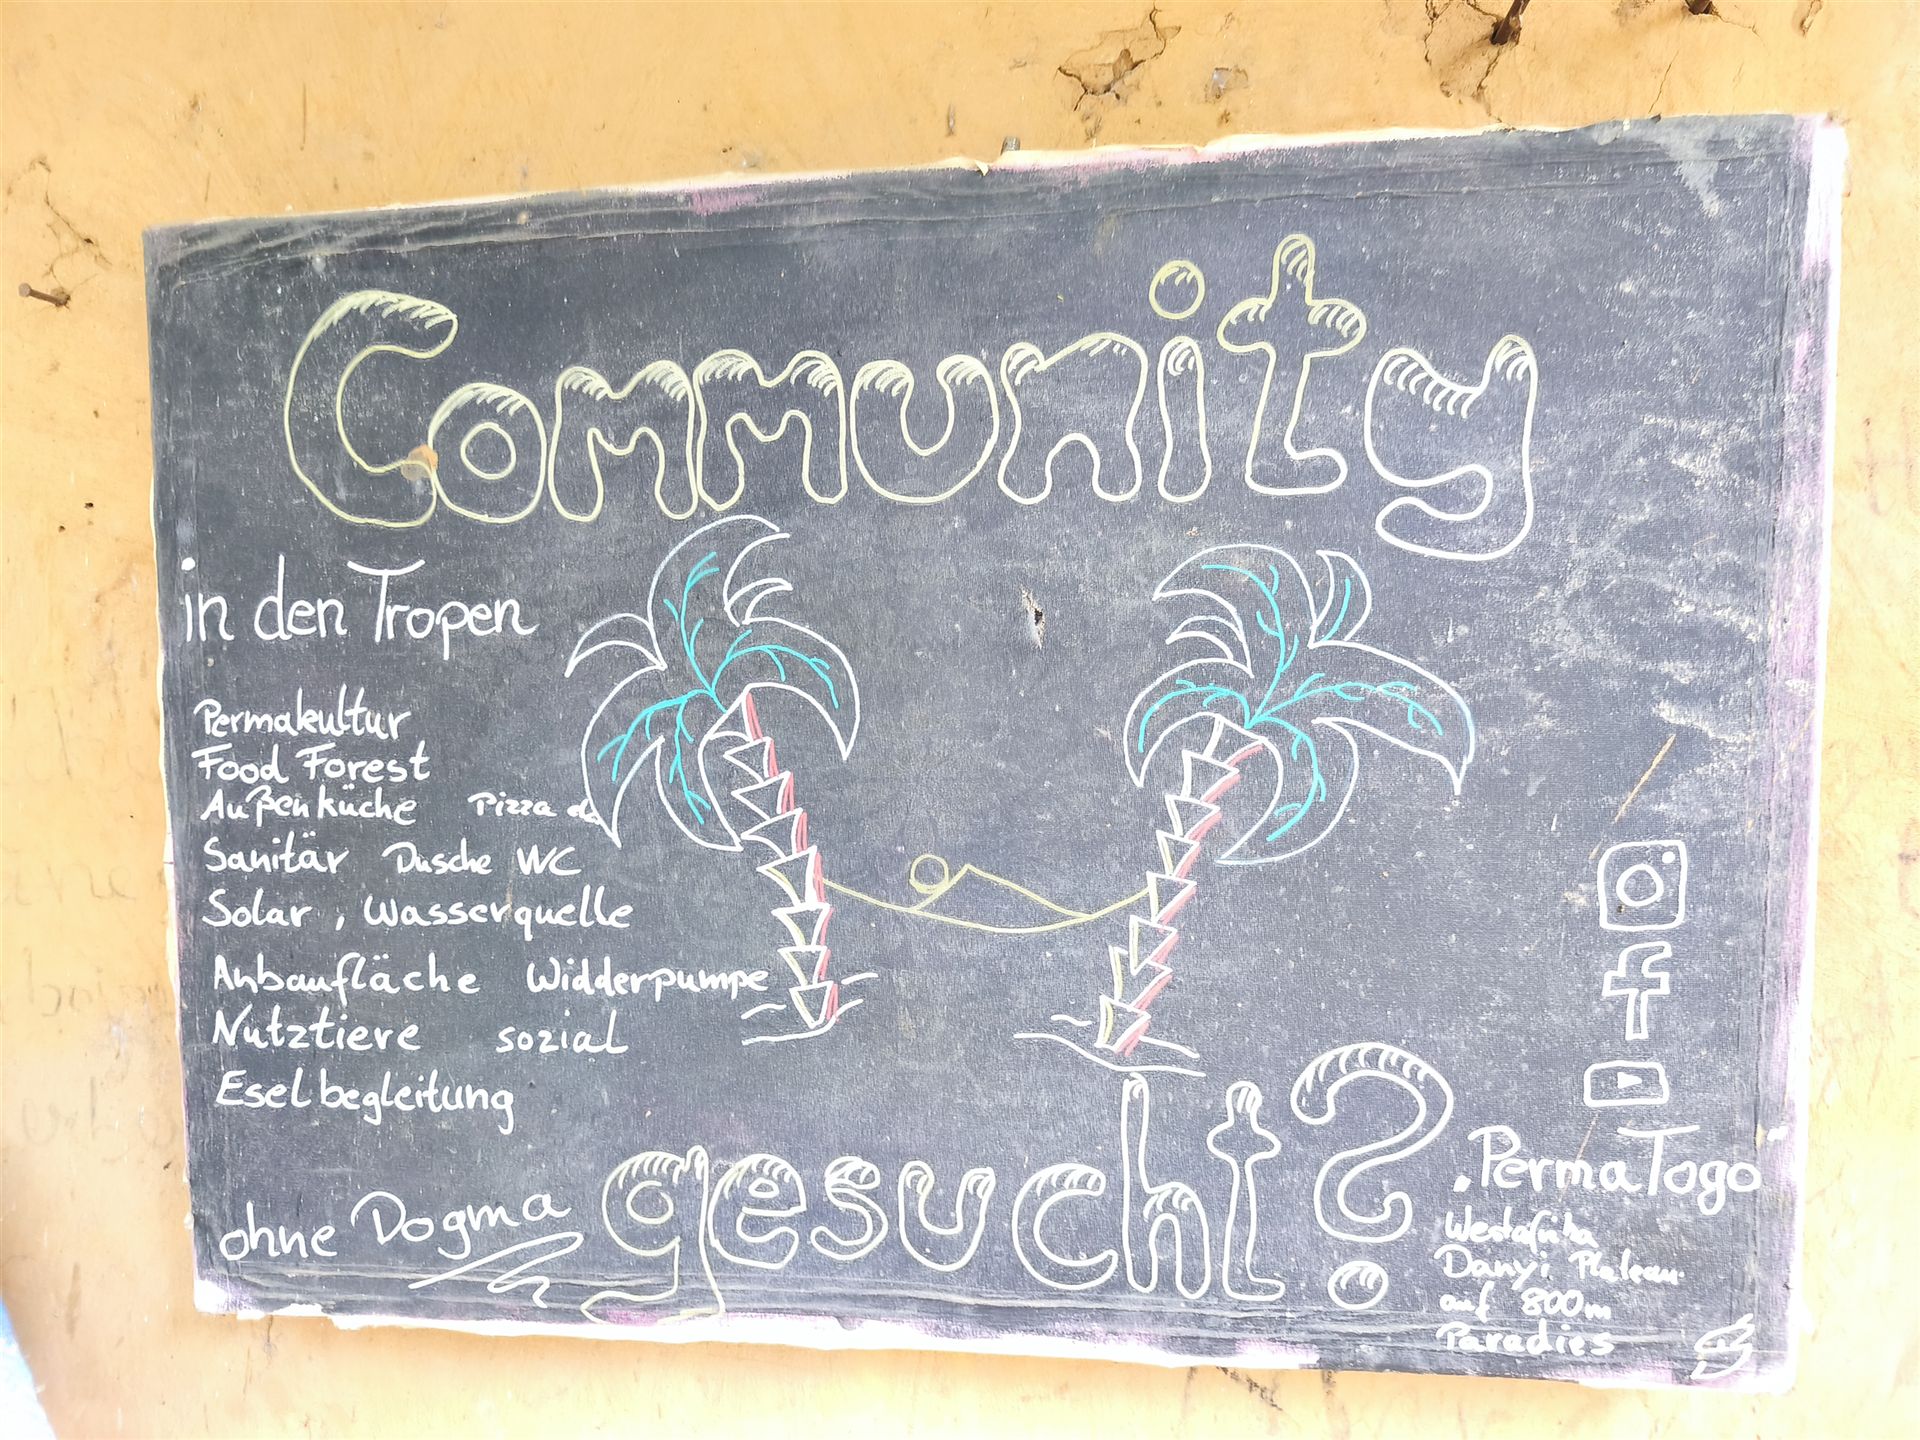 Community
in den Tropen
Permakultur
Food Forest
Außenküche Pizza da
Sanitär Dusche WC
Solar, Wasserquelle
Anbaufläche Widderpumpe
Nutztiere sozial
Eselbegleitung
ohne Dogma
gesucht?
PermaTogo
Westafrika
Danyi Plateau
auf 800m
Paradies